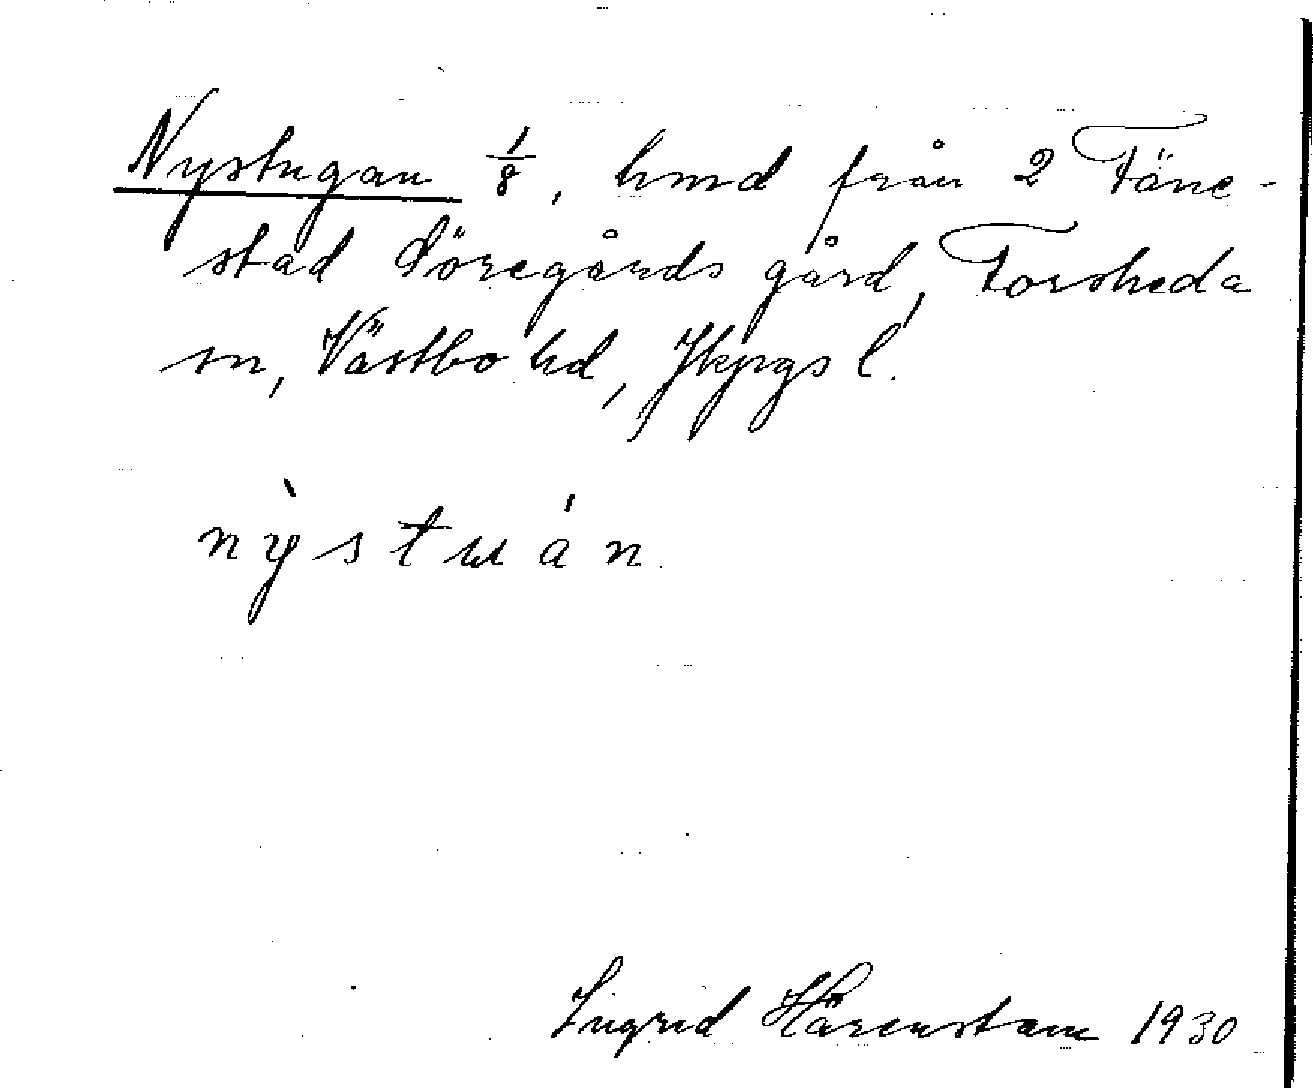 Nystugan 1/8, hmd från 2 Täne-
stad Söregårds gård, Torskeda
sn, Västbo hd, Jkpgs l.
nỳstuán
Ingrid Härenstam 1930